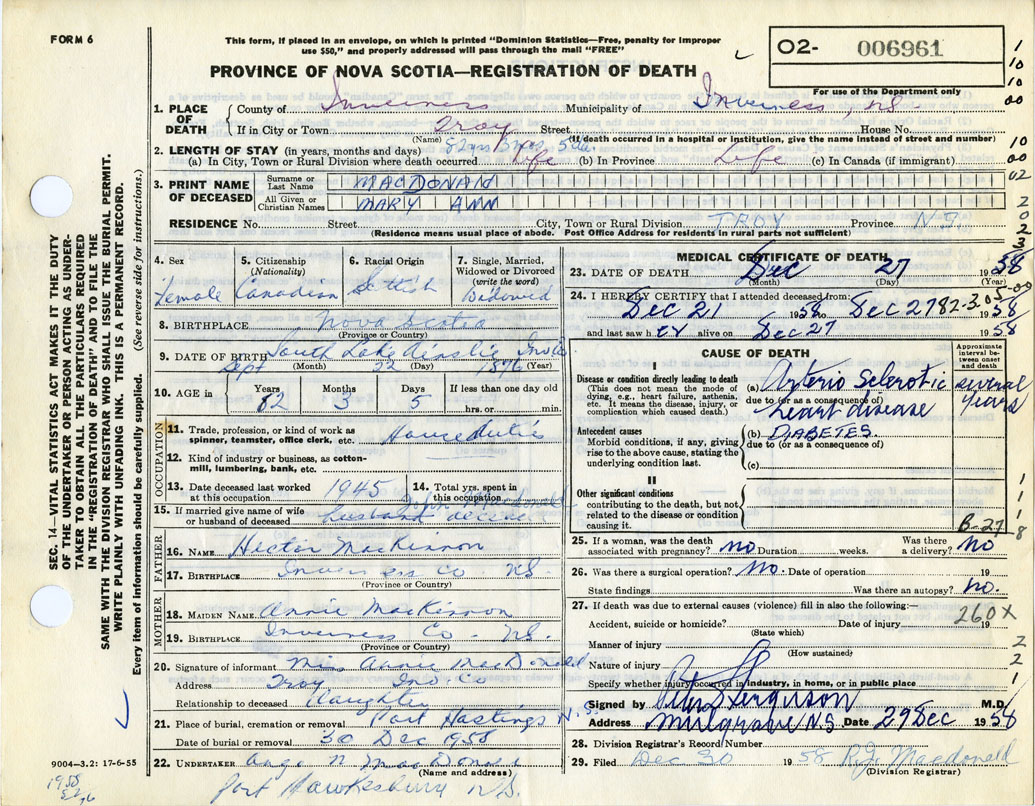 FORM 6
This form, if placed in an envelope, on which is printed "Dominion Statistics—Free, penalty for improper
use $50," and properly addressed will pass through the mail "FREE"
PROVINCE OF NOVA SCOTIA—REGISTRATION OF DEATH
02- 006961
For use of the Department only
1. PLACE OF DEATH
County of Inverness Municipality of Inverness, N.S.
If in City or Town Troy Street House No.
(Name) (If death occurred in a hospital or institution, give the name instead of street and number)
2. LENGTH OF STAY (in years, months and days)
(a) In City, Town or Rural Division where death occurred Life (b) In Province Life (c) In Canada (if immigrant)
3. PRINT NAME OF DECEASED
Surname or Last Name MACDONALD
All Given or Christian Names MARY ANN
RESIDENCE No. Street City, Town or Rural Division TROY Province N S
(Residence means usual place of abode. Post Office Address for residents in rural parts not sufficient)
4. Sex Female
5. Citizenship (Nationality) Canadian
6. Racial Origin Scottish
7. Single, Married, Widowed or Divorced (write the word) Widowed
8. BIRTHPLACE Nova Scotia
(Province or Country)
South Lake Ainslie
9. DATE OF BIRTH Sept (Month) 22 (Day) 1876 (Year)
10. AGE in Years 82 Months 3 Days 5 If less than one day old hrs. or min.
OCCUPATION
11. Trade, profession, or kind of work as spinner, teamster, office clerk, etc. House duties
12. Kind of industry or business, as cotton-mill, lumbering, bank, etc.
13. Date deceased last worked at this occupation 1945
14. Total yrs. spent in this occupation
15. If married give name of wife or husband of deceased John Macdonald husband
FATHER
16. NAME Hector MacKinnon
17. BIRTHPLACE Inverness Co NS
(Province or Country)
MOTHER
18. MAIDEN NAME Annie MacKinnon
19. BIRTHPLACE Inverness Co NS.
(Province or Country)
20. Signature of informant Miss Annie MacDonald
Address Troy Inv. Co
Relationship to deceased daughter
21. Place of burial, cremation or removal Port Hastings N.S.
Date of burial or removal 30 Dec 1958
22. UNDERTAKER MacDonald
(Name and address)
Port Hawkesbury N.S.
MEDICAL CERTIFICATE OF DEATH
23. DATE OF DEATH Dec (Month) 27 (Day) 1958 (Year)
24. I HEREBY CERTIFY that I attended deceased from:
Dec 21 1958 Dec 27 1958
82-3-05-00
and last saw her alive on Dec 27 1958
CAUSE OF DEATH
Approximate interval between onset and death
I
Disease or condition directly leading to death
(This does not mean the mode of dying, e.g., heart failure, asthenia, etc. It means the disease, injury, or complication which caused death.)
(a) Arterio Sclerotic heart disease several years
due to (or as a consequence of)
Antecedent causes
Morbid conditions, if any, giving rise to the above cause, stating the underlying condition last.
(b) DIABETES.
due to (or as a consequence of)
(c)
II
Other significant conditions
contributing to the death, but not related to the disease or condition causing it.
B-27
25. If a woman, was the death associated with pregnancy? no Duration weeks. Was there a delivery? no
26. Was there a surgical operation? no. Date of operation 19
State findings Was there an autopsy? no.
27. If death was due to external causes (violence) fill in also the following:—
260X
Accident, suicide or homicide? Date of injury 19
(State which)
Manner of injury
(How sustained)
Nature of injury
Specify whether injury occurred in industry, in home, or in public place
Signed by Ferguson M.D.
Address Mulgrave N.S. Date 29 Dec 1958
28. Division Registrar's Record Number
29. Filed Dec 30 1958 R.J. Macdonald
(Division Registrar)
SEC. 14—VITAL STATISTICS ACT MAKES IT THE DUTY
OF THE UNDERTAKER OR PERSON ACTING AS UNDER-
TAKER TO OBTAIN ALL THE PARTICULARS REQUIRED
IN THE "REGISTRATION OF DEATH" AND TO FILE THE
SAME WITH THE DIVISION REGISTRAR WHO SHALL ISSUE THE BURIAL PERMIT.
WRITE PLAINLY WITH UNFADING INK. THIS IS A PERMANENT RECORD.
Every item of information should be carefully supplied. (See reverse side for instructions.)
9004—3.2: 17-6-55
1958
1
10
10
00
10
00
02
2
0
2
3
1
1
1
8
2
2
1